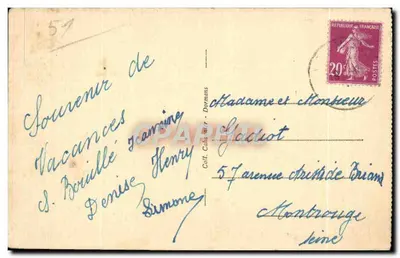 51
Souvenir de
Vacances
S. Bouillé
Jeannine
Henry
Denise
Simone
Coll. Dormans
REPUBLIQUE FRANÇAISE
20c
POSTES
Madame et Monsieur
Godiot
57 avenue Aristide Briand
Montrouge
Seine